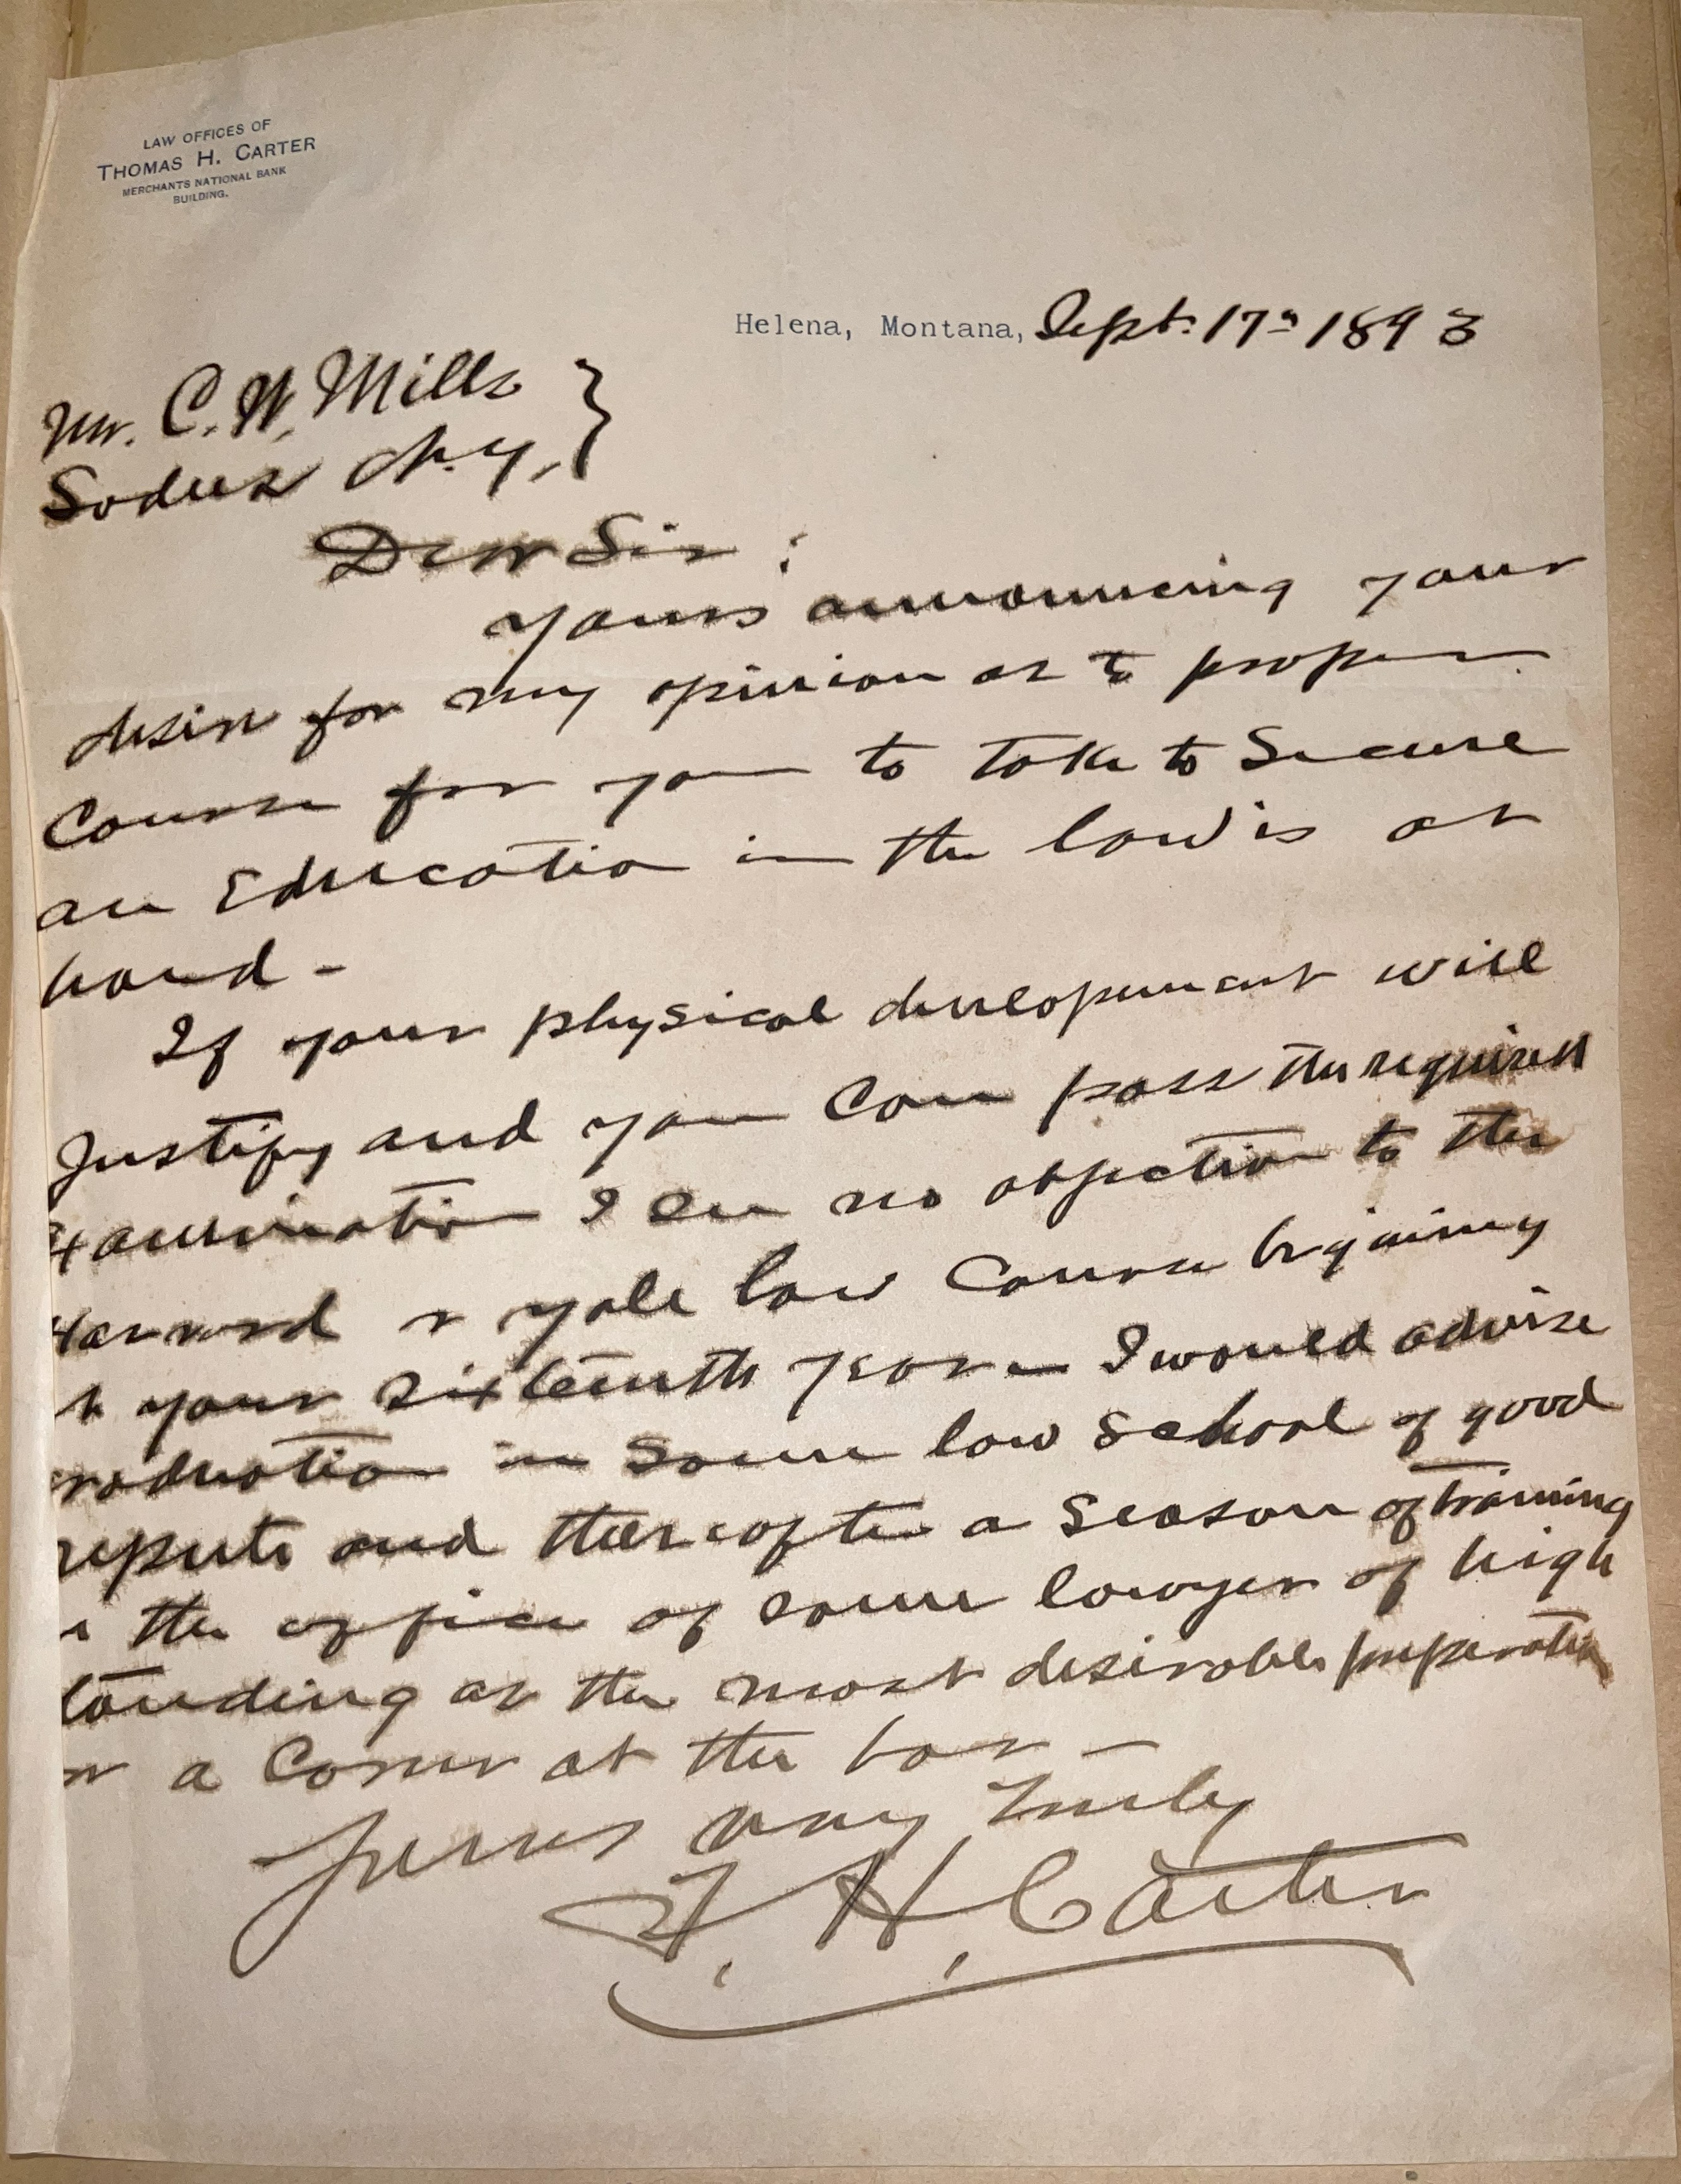 LAW OFFICES OF
THOMAS H. CARTER
MERCHANTS NATIONAL BANK
BUILDING.
Helena, Montana, Sept. 17th 1893
Mr. C. W. Mills }
Sodus N.Y. }
Dear Sir :
Yours announcing your
desire for my opinion as to proper
Course for you to take to Secure
an Education in the law is at
hand -
If your physical development will
Justify and you Can pass the required
Examination I see no objection to the
Harvard or Yale law Course begining
in your sixteenth year - I would advise
graduation in Some law School of good
repute and thereafter a Season of training
in the office of some lawyer of high
standing as the most desirable preparation
for a Career at the bar -
Yours very truly
T. H. Carter